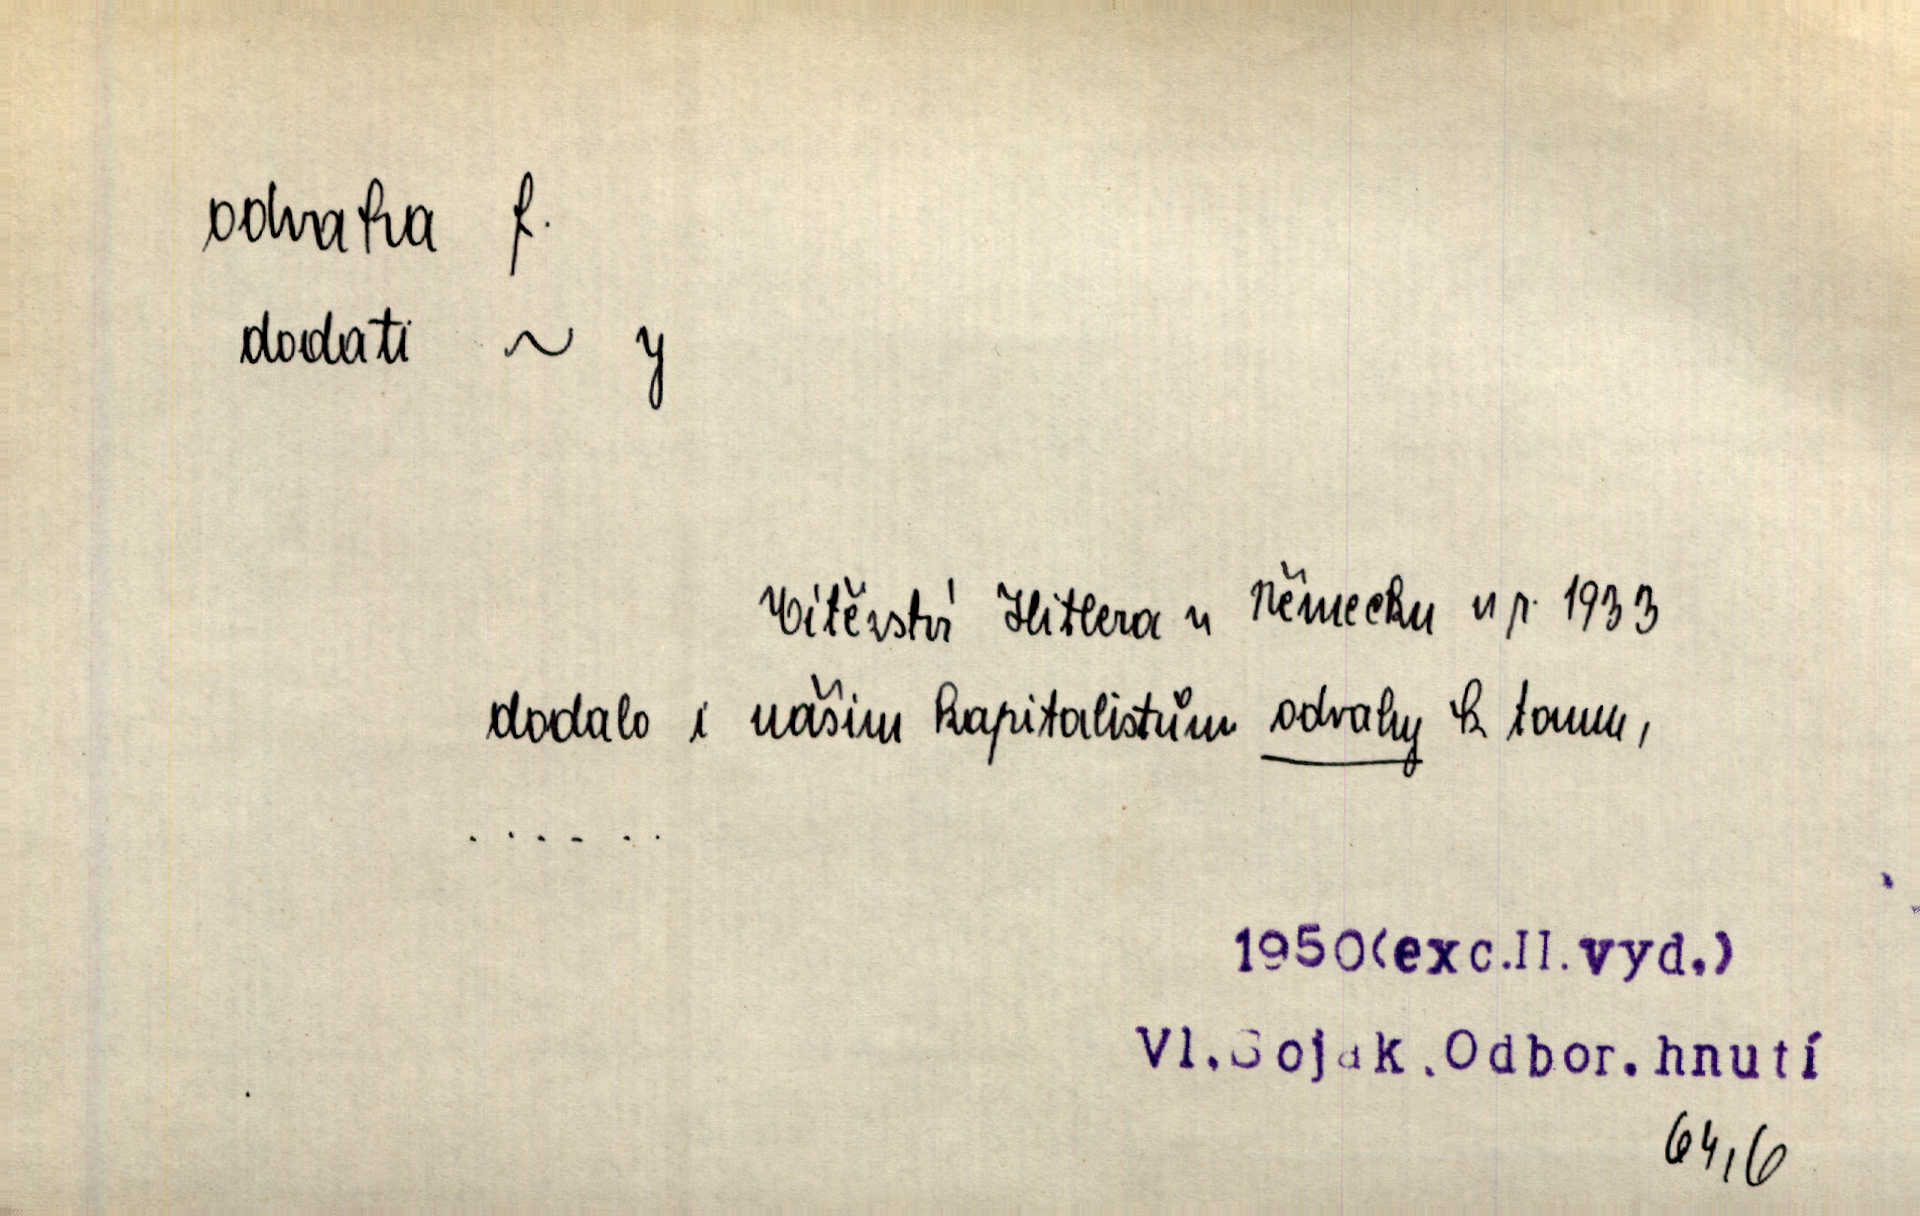 odvaha f.
dodati ~ y
Vítězství Hitlera v Německu v r. 1933
dodalo i našim kapitalistům odvahy k tomu,
. . . . . .
1950(exc.II.vyd.)
Vl.Soják.Odbor.hnutí
64,6